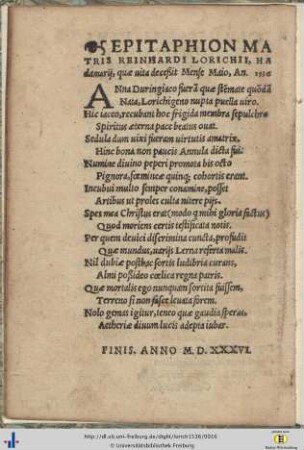 EPITAPHION MA
TRIS REINHARDI LORICHII, HA
damarij, quæ uita decessit Mense Maio, An.
ANna Duringiaco fuerā quæ stēmate quōdā
Nata, Lorichigeno nupta puella uiro.
Hic iaceo, recubant hoc frigida membra sepulchro
Spiritus æterna pace beatus ouat.
Sedula dum uixi fueram uirtutis amatrix,
Hinc bona non paucis Annula dicta fui:
Numine diuino peperi promota bis octo
Pignora, fœmineæ quinq; cohortis erant.
Incubui multo semper conamine, posset
Artibus ut proles culta nitere pijs.
Spes mea Christus erat (modo q mihi gloria factus)
Quod moriens certis testificata notis.
Per quem deuici discrimina cuncta, profudit
Quæ mundus, uarijs Lerna referta malis.
Nil dubiæ posthac sortis ludibria curans,
Almi possideo cœlica regna patris.
Quæ mortalis ego nunquam sortita fuissem,
Terreno si non fasce leuata forem.
Nolo gemas igitur, teneo quæ gaudia speras,
Aetheriæ diuum lucis adepta iubar.
FINIS. ANNO M. D. XXXVI.
http://dl.ub.uni-freiburg.de/diglit/lorich1536/0016
© Universitätsbibliothek Freiburg